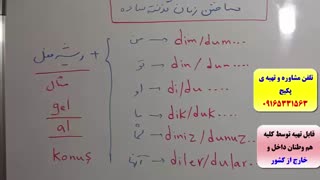 ساختن زبان گذشته ساده
من → dim/dum...
تو → din/dun...
او → di/du...
ما → dik/duk...
شما → diniz/dunuz...
آنها → diler/dular...
+ ریشه فعل
مثال
gel
al
konuş
تلفن مشاوره و تهیه ی
پکیج
09165331563
قابل تهیه توسط کلیه
هم وطنان داخل و
خارج از کشور